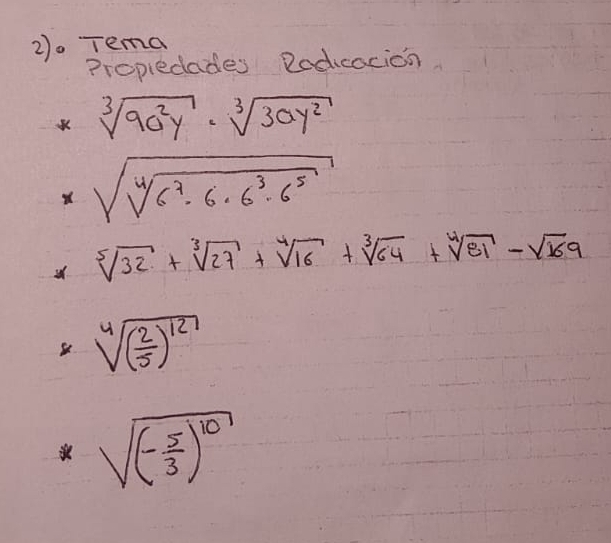 2). Tema
Propiedades Radicación.
* ∛(9a²y) · ∛(3ay²)
* √(∜(6⁷ · 6 · 6³ · 6⁵))
* ⁵√32 + ∛27 + ∜16 + ∛64 + ∜81 - √169
* ∜((2/5)¹²)
* √((-5/3)¹⁰)